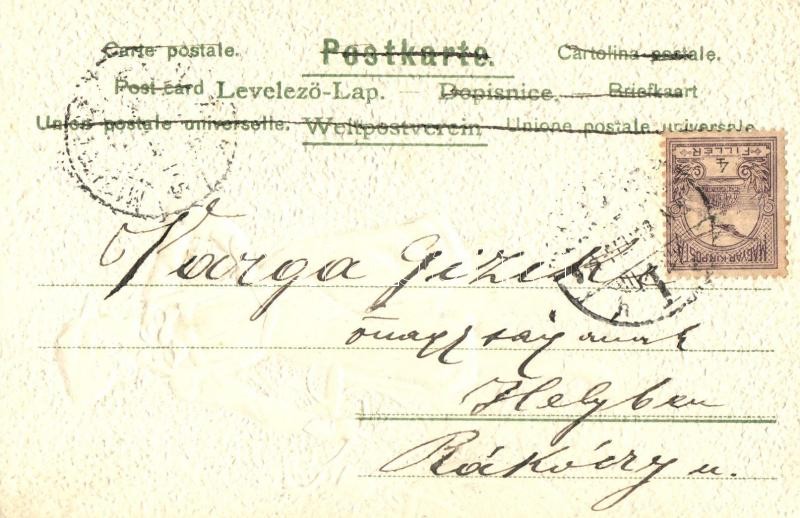 Carte postale. Postkarte. Cartolina postale.
Post card Levelező-Lap. — Dopisnice. — Briefkaart
Union postale universelle. Weltpostverein Unione postale universale
4
FILLÉR
MAGYAR KIR. POSTA
Varga Gizik
őnagyságának
Helyben
Rákóczy u.